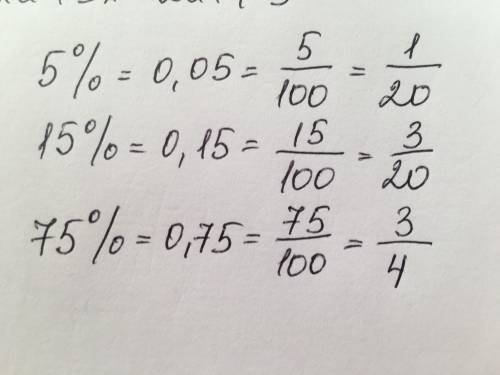 5% = 0,05 = 5/100 = 1/20
15% = 0,15 = 15/100 = 3/20
75% = 0,75 = 75/100 = 3/4